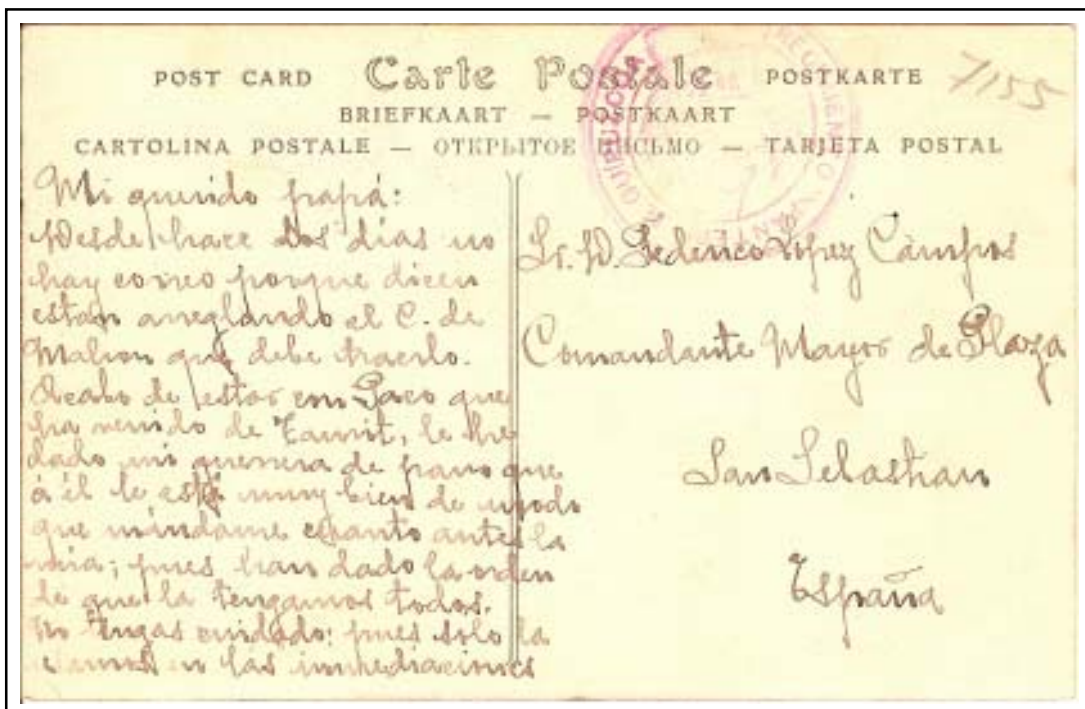 POST CARD Carte Postale POSTKARTE
7155
BRIEFKAART — POSTKAART
CARTOLINA POSTALE — ОТКРЫТОЕ ПИСЬМО — TARJETA POSTAL
REGIMIENTO
GUIPUZCOA
Mi querido papá:
Desde hace dos días no
hay correo porque dicen
están arreglando el C. de
Mahon que debe traerlo.
Acabo de estar con Paco que
ha venido de Taurit, le he
dado mi guerrera de pano que
á él le está muy bien de modo
que mándame cuanto antes la
mia; pues han dado la orden
de que la tengamos todos.
No tengas cuidado: pues solo la
en las inmediaciones
Sr. D. Federico López Campos
Comandante Mayor de Plaza
San Sebastian
España